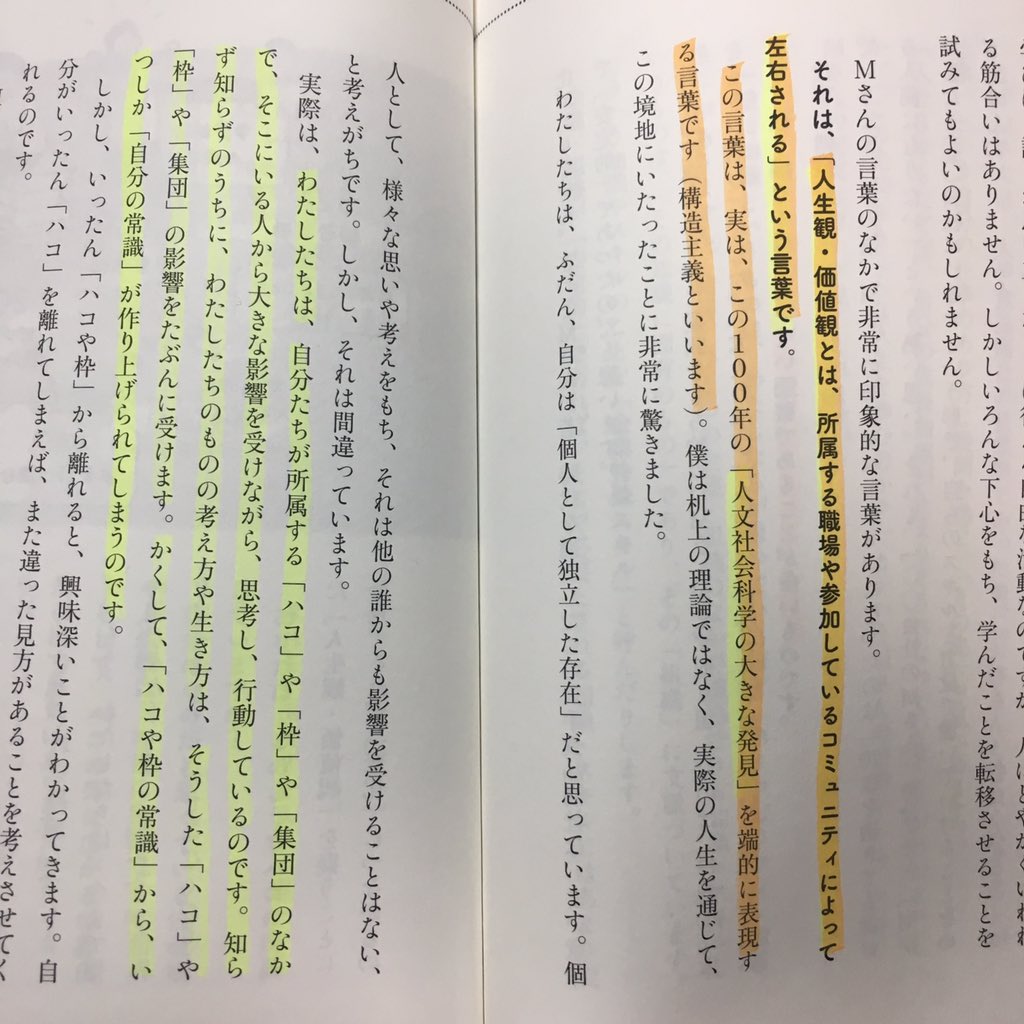 る筋合いはありません。しかしいろんな下心をもち、学んだことを転移させることを
試みてもよいのかもしれません。
Mさんの言葉のなかで非常に印象的な言葉があります。
それは、「人生観・価値観とは、所属する職場や参加しているコミュニティによって
左右される」という言葉です。
この言葉は、実は、この100年の「人文社会科学の大きな発見」を端的に表現す
る言葉です（構造主義といいます）。僕は机上の理論ではなく、実際の人生を通じて、
この境地にいたったことに非常に驚きました。
わたしたちは、ふだん、自分は「個人として独立した存在」だと思っています。個
人として、様々な思いや考えをもち、それは他の誰からも影響を受けることはない、
と考えがちです。しかし、それは間違っています。
実際は、わたしたちは、自分たちが所属する「ハコ」や「枠」や「集団」のなか
で、そこにいる人から大きな影響を受けながら、思考し、行動しているのです。知ら
ず知らずのうちに、わたしたちのものの考え方や生き方は、そうした「ハコ」や
「枠」や「集団」の影響をたぶんに受けます。かくして、「ハコや枠の常識」から、い
つしか「自分の常識」が作り上げられてしまうのです。
しかし、いったん「ハコや枠」から離れると、興味深いことがわかってきます。自
分がいったん「ハコ」を離れてしまえば、また違った見方があることを考えさせてく
れるのです。